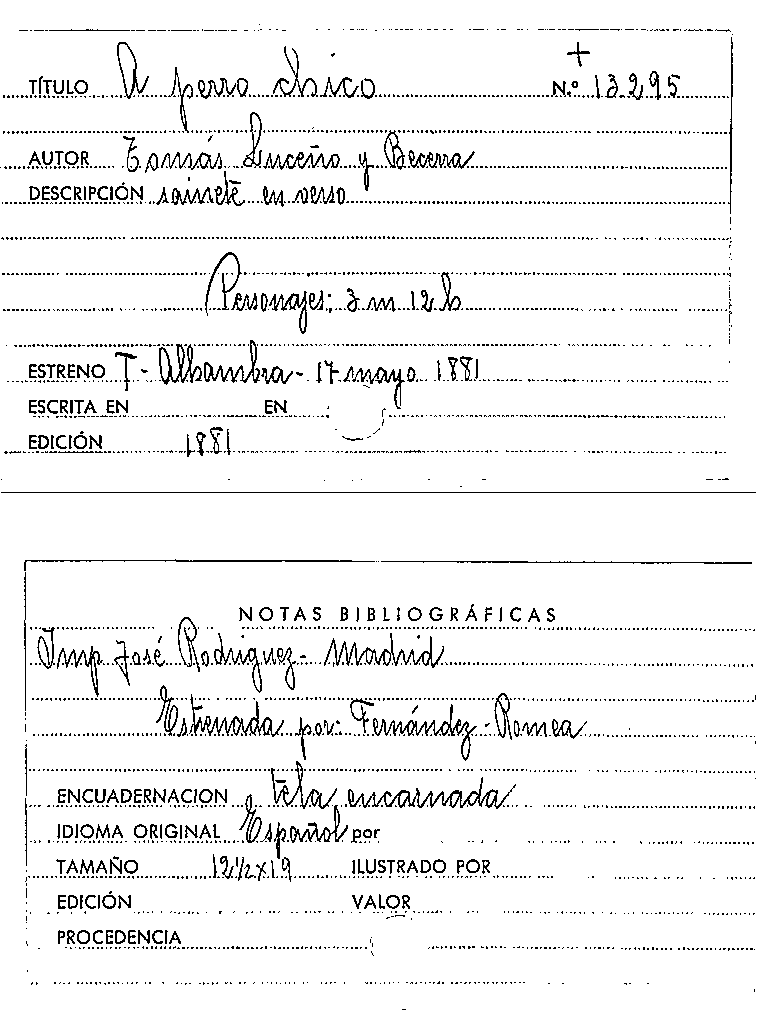 +
TÍTULO A perro chico N.º 13295
AUTOR Tomás Luceño y Becerra
DESCRIPCIÓN sainete en verso
Personajes: 3 m 12 h
ESTRENO T- Alhambra - 17 mayo 1881
ESCRITA EN EN
EDICIÓN 1881
NOTAS BIBLIOGRÁFICAS
Imp José Rodriguez - Madrid
Estrenada por: Fernández - Romea
ENCUADERNACION tela encarnada
IDIOMA ORIGINAL Español por
TAMAÑO 12½x19 ILUSTRADO POR
EDICIÓN VALOR
PROCEDENCIA